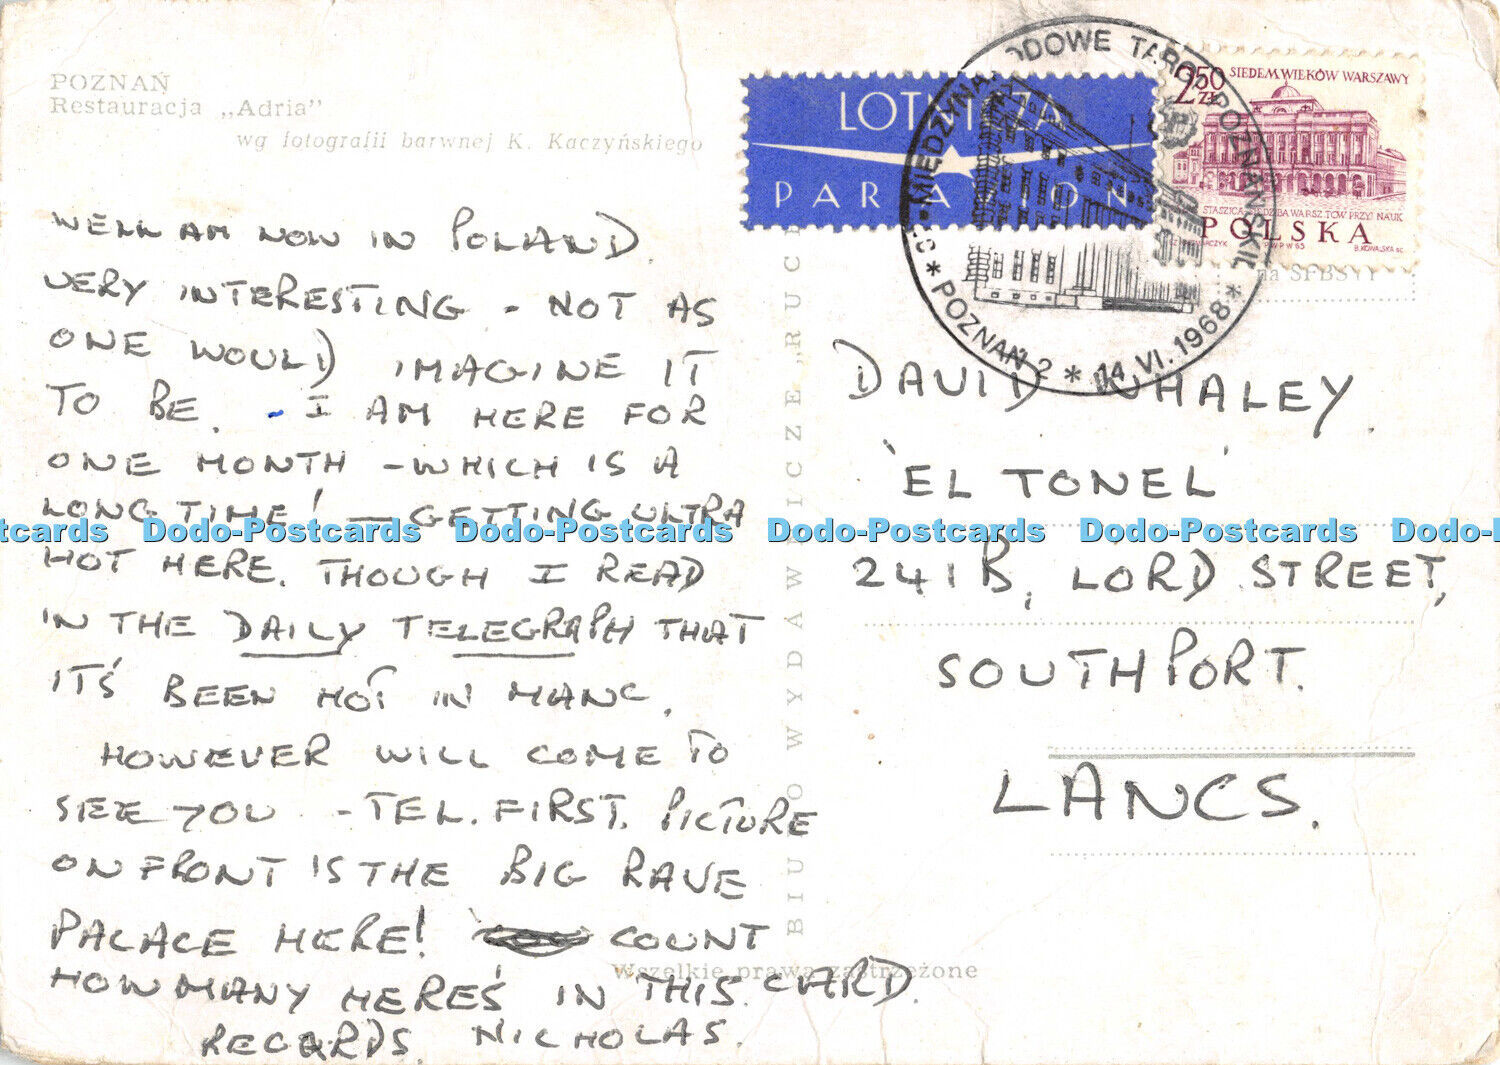 POZNAŃ
Restauracja „Adria”
wg fotografii barwnej K. Kaczyńskiego
WELL AM NOW IN POLAND
VERY INTERESTING - NOT AS
ONE WOULD IMAGINE IT
TO BE. - I AM HERE FOR
ONE MONTH - WHICH IS A
LONG TIME! - GETTING ULTRA
HOT HERE. THOUGH I READ
IN THE DAILY TELEGRAPH THAT
IT'S BEEN HOT IN MANC.
HOWEVER WILL COME TO
SEE YOU - TEL. FIRST. PICTURE
ON FRONT IS THE BIG RAVE
PALACE HERE! COUNT
HOW MANY HERE'S IN THIS CARD.
REGARDS. NICHOLAS.
BIURO WYDAWNICZE „RUCH”
Wszelkie prawa zastrzeżone
LOTNICZA
PAR AVION
MIĘDZYNARODOWE TARGI POZNAŃSKIE
* POZNAŃ 2 * 14.VI.1968 *
2,50 ZŁ
SIEDEM WIEKÓW WARSZAWY
POLSKA
PWPW 65
B. KOWALSKA SC.
na SFBS
DAVID WHALEY.
'EL TONEL'
241B, LORD STREET,
SOUTHPORT.
LANCS.
Dodo-Postcards Dodo-Postcards Dodo-Postcards Dodo-Postcards Dodo-Postcards